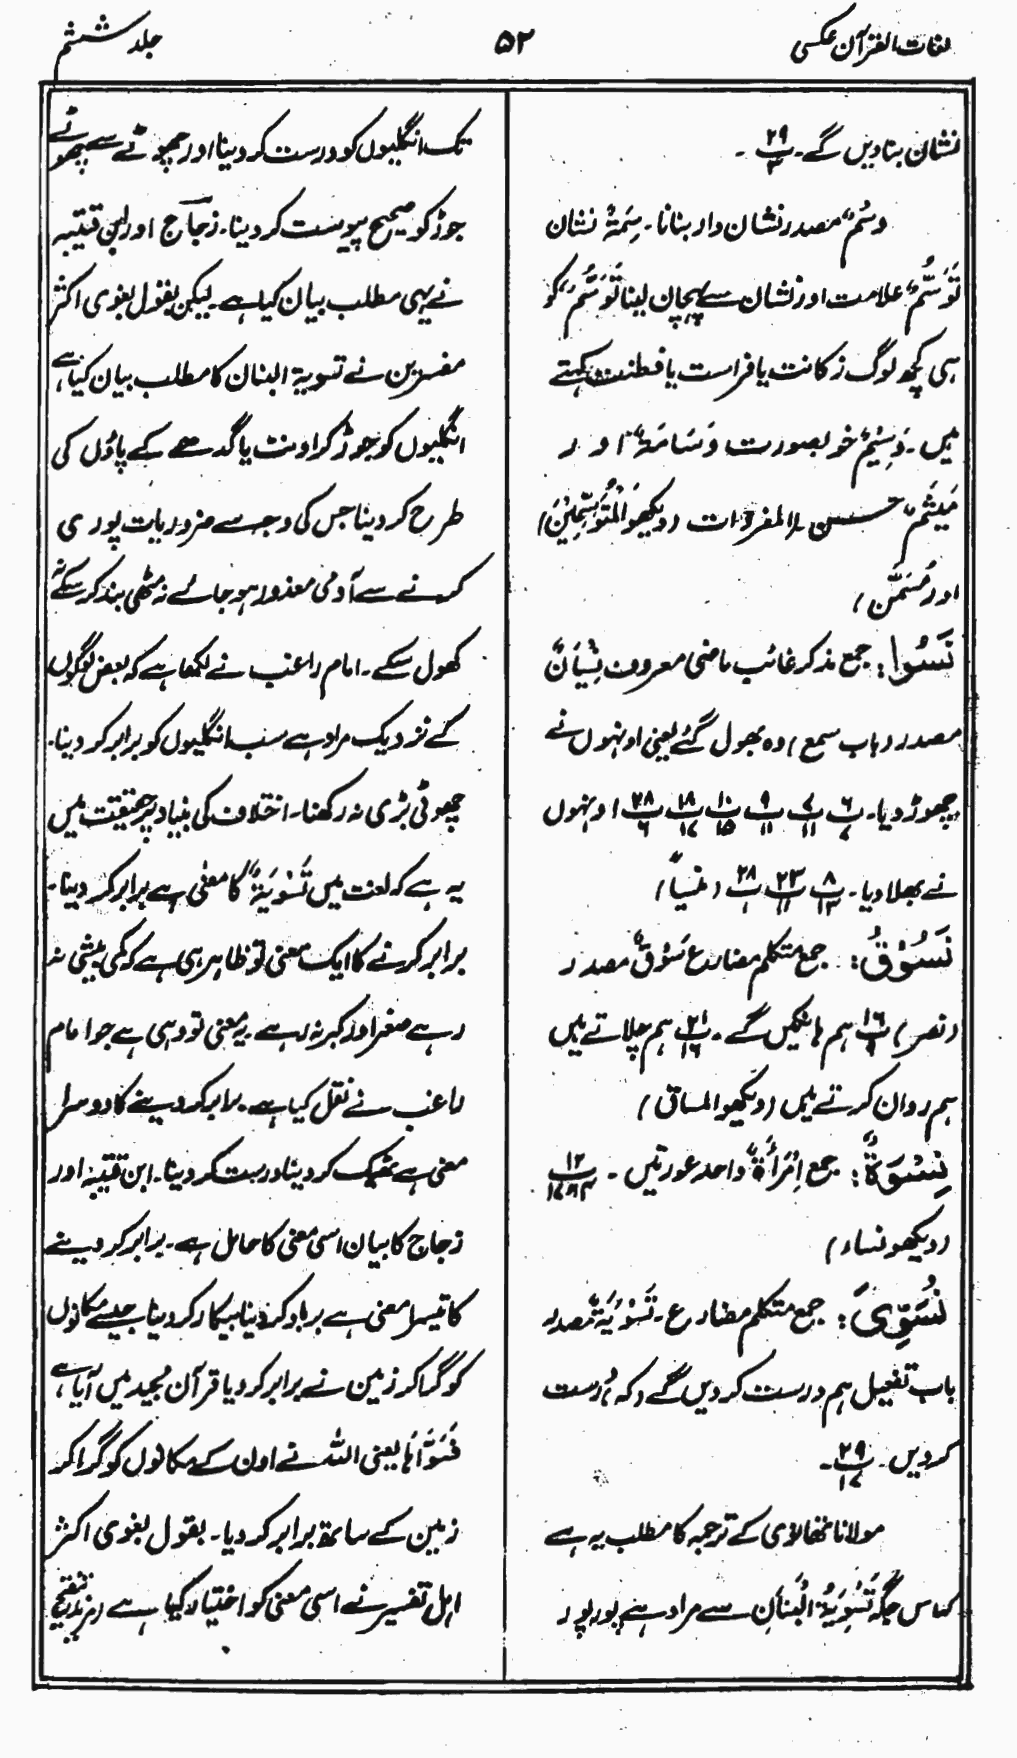 لغات القرآن عکسی
۵۲
جلد ششم
نشان بنا دیں گے۔ پ ۲۹ / ۳ ۔
وَسْمٌ مصدر نشان دار بنانا۔ سِمَۃٌ نشان
تَوَسُّمٌ علامت اور نشان سے پہچان لینا تَوَسُّمٌ کو
ہی کچھ لوگ زکانت یا فراست یا فطنت کہتے
ہیں۔ وَسِیْمٌ خوبصورت وَسَامَۃٌ اور
مَیْثَمٌ حسن المفردات (دیکھو الْمُتَوَسِّمِیْنَ)
اور
نَسُوا: جمع مذکر غائب ماضی معروف نِسْیَانٌ
مصدر (باب سمع) وہ بھول گئے یعنی اونہوں نے
چھوڑ دیا۔ پ ۶ / ۷ پ ۷ / ۱۱ پ ۹ / ۱۱ پ ۱۰ / ۱۵ پ ۱۸ / ۱۷ پ ۲۸ / ۶ اونہوں
نے بھلا دیا۔ پ ۸ / ۱۳ پ ۲۳ / ۱۱ پ ۲۸ / ۱ (نسیا)
نَسُوْقُ: جمع متکلم مضارع سَوْقٌ مصدر
(نصر) پ ۱۶ / ۹ ہم ہانکیں گے۔ پ ۲۱ / ۱۶ ہم چلاتے ہیں
ہم رواں کرتے ہیں (دیکھو المساق)
نِسْوَۃٌ: جمع اِمْرَأَۃٌ واحد عورتیں۔ پ ۱۲
(دیکھو نساء)
نُسَوِّیَ: جمع متکلم مضارع۔ تَسْوِیَۃٌ مصدر
باب تفعیل ہم درست کر دیں گے (کہ) درست
کر دیں۔ پ ۲۹ / ۱۷ ۔
مولانا تھانوی کے ترجمہ کا مطلب یہ ہے
کہ اس جگہ تَسْوِیَۃُ الْبَنَانِ سے مراد ہے پور پور
تک انگلیوں کو درست کر دینا اور چھوٹے سے چھوٹے
جوڑ کو صحیح پیوست کر دینا۔ زجاج اور ابن قتیبہ
نے یہی مطلب بیان کیا ہے۔ لیکن بقول بغوی اکثر
مفسرین نے تسویۃ البنان کا مطلب بیان کیا ہے
انگلیوں کو جوڑ کر اونٹ یا گدھے کے پاؤں کی
طرح کر دینا جس کی وجہ سے ضروریات پوری
کرنے سے آدمی معذور ہو جائے نہ مٹھی بند کر سکے نہ
کھول سکے۔ امام راغب نے لکھا ہے کہ بعض لوگوں
کے نزدیک مراد ہے سب انگلیوں کو برابر کر دینا۔
چھوٹی بڑی نہ رکھنا۔ اختلاف کی بنیاد پر حقیقت میں
یہ ہے کہ لغت میں تَسْوِیَۃٌ کا معنی ہے برابر کر دینا۔
برابر کرنے کا ایک معنی تو ظاہر ہی ہے کہ کمی بیشی نہ
رہے صغر اور کبر نہ رہے۔ یہ معنی تو وہی ہے جو امام
راغب نے نقل کیا ہے۔ برابر کر دینے کا دوسرا
معنی ہے ٹھیک کر دینا درست کر دینا۔ ابن قتیبہ اور
زجاج کا بیان اسی معنی کا حامل ہے۔ برابر کر دینے
کا تیسرا معنی ہے برباد کر دینا بیکار کر دینا جیسے مکانوں
کو گرا کر زمین نے برابر کر دیا قرآن مجید میں آیا ہے
فَسَوَّاهَا یعنی اللہ نے اون کے مکانوں کو گرا کر
زمین کے ساتھ برابر کر دیا۔ بقول بغوی اکثر
اہل تفسیر نے اسی معنی کو اختیار کیا ہے